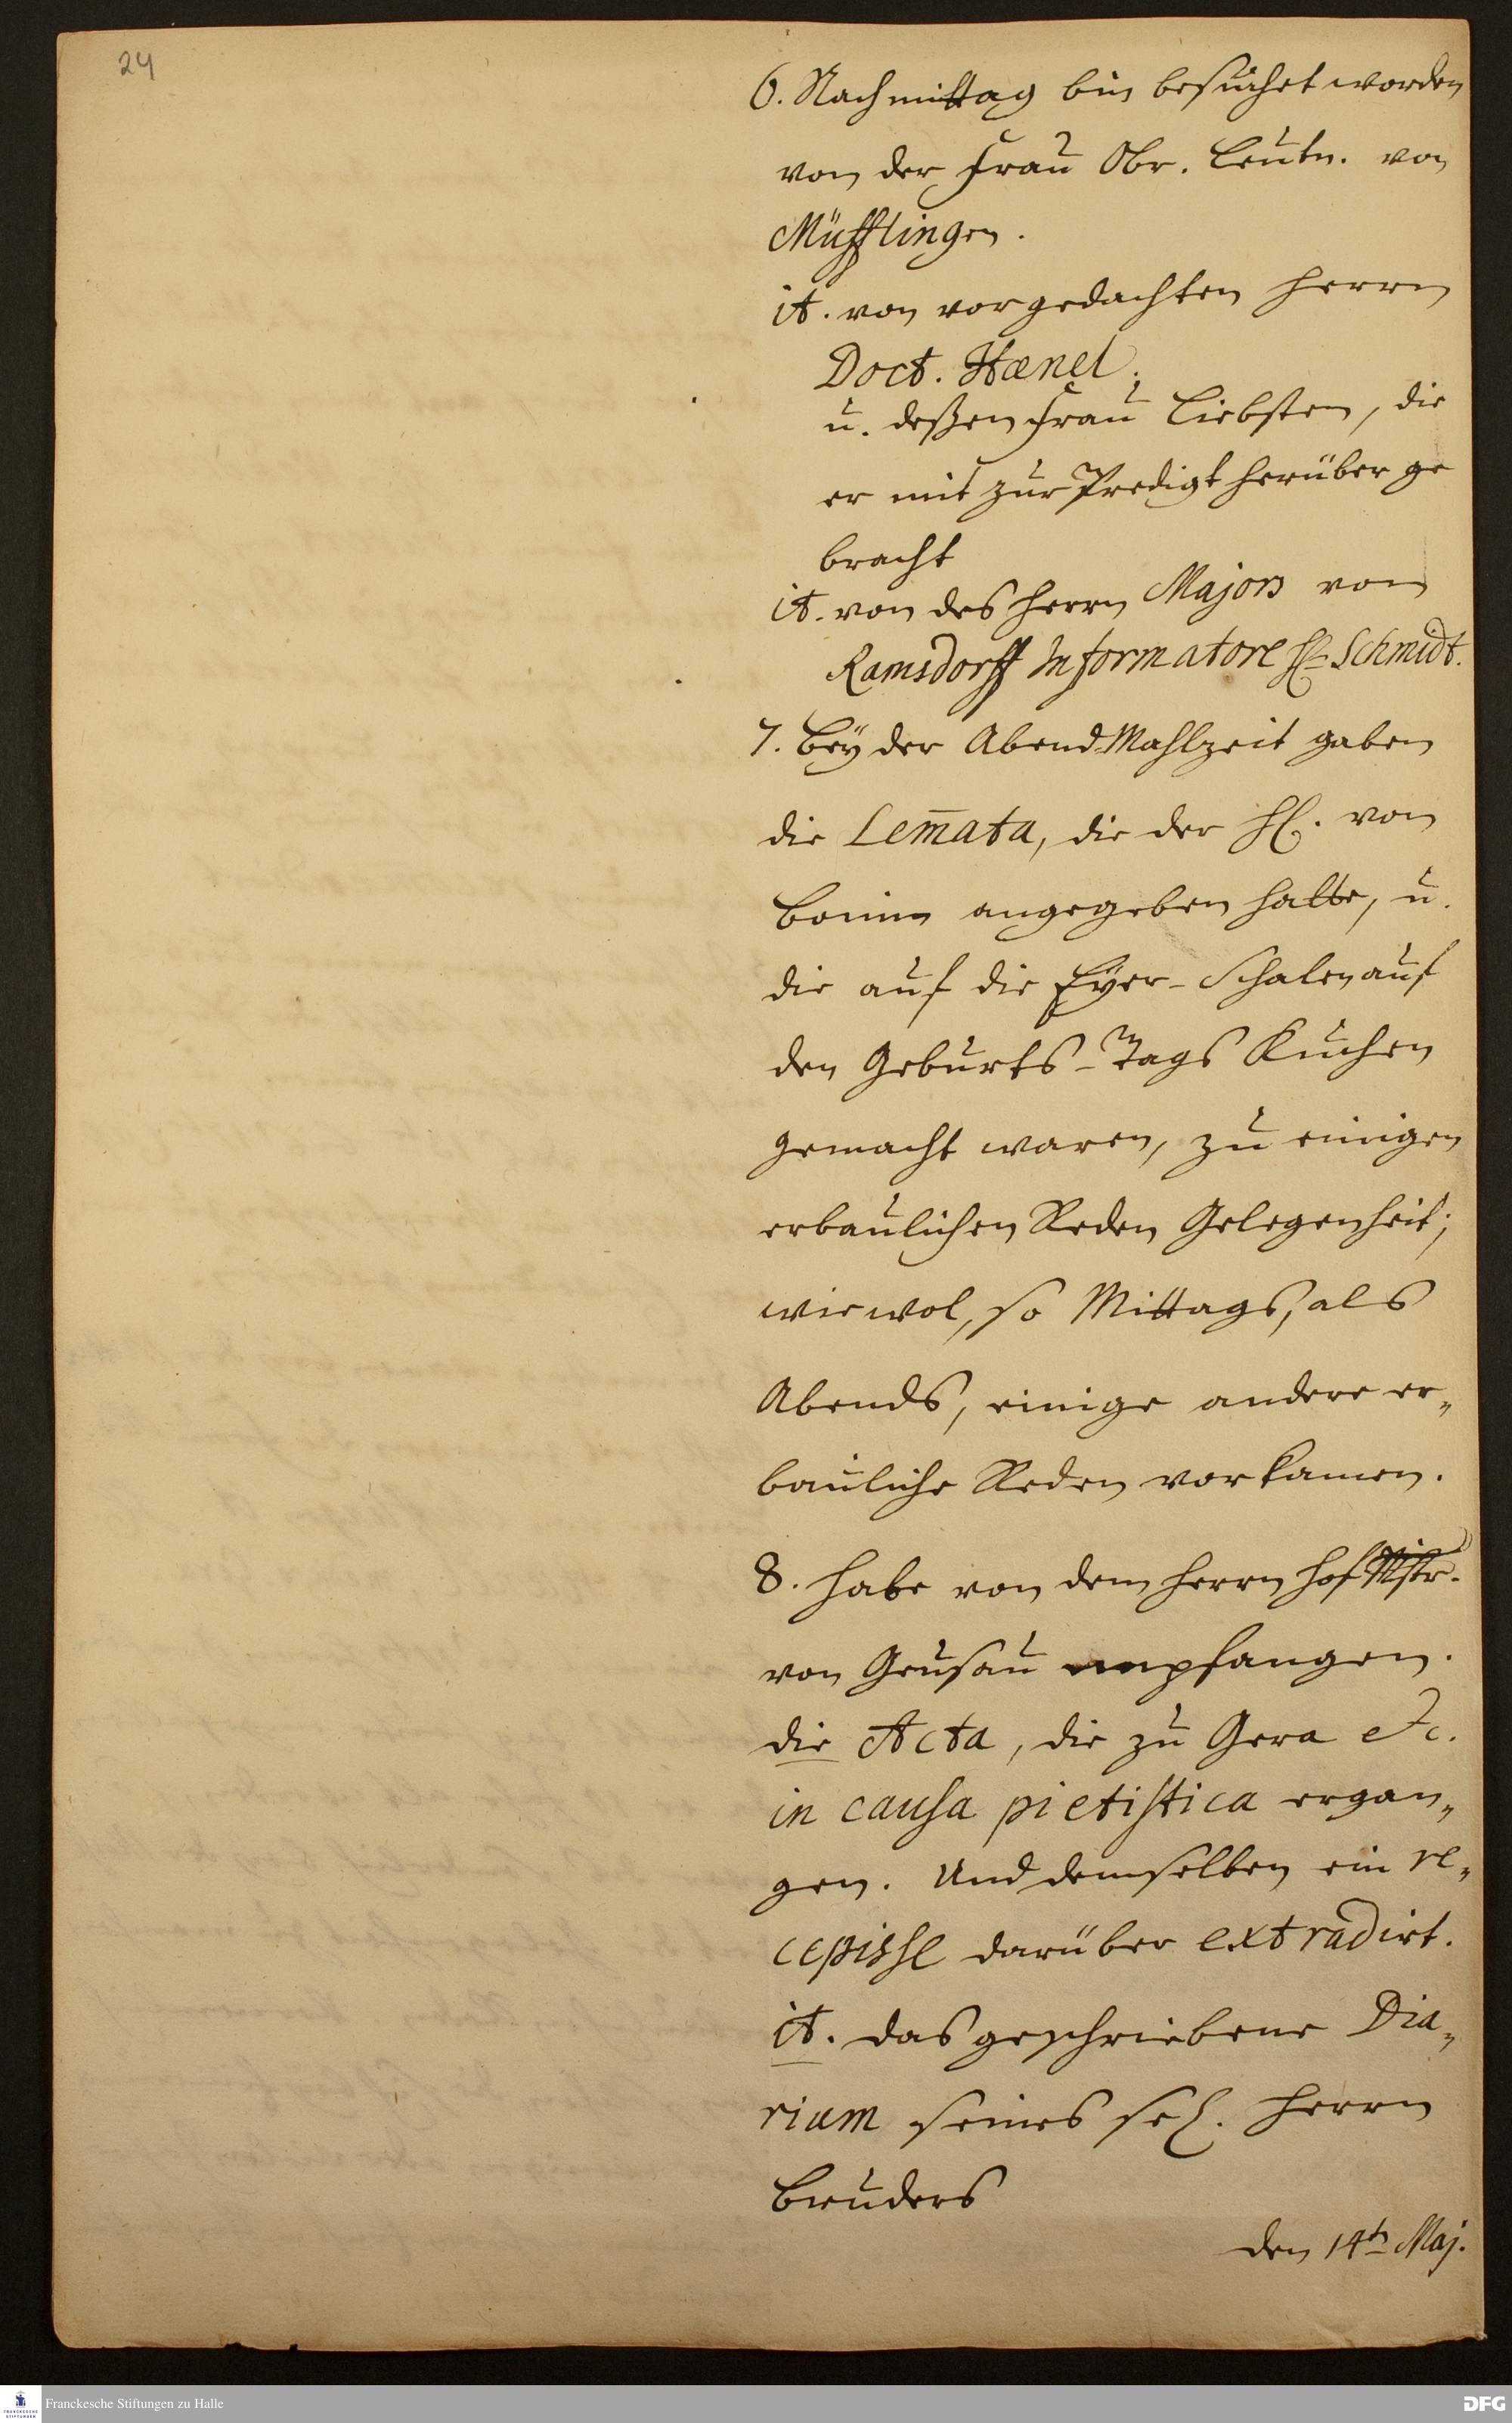 24
6. Nachmittag bin besuchet worden
von der Frau Obr. Leutn. von
Müfflingen.
it. von vorgedachten Herrn
Doct. Hænel.
u. deßen Frau Liebsten, die
er mit zur Predigt herüber ge
bracht
it. von des Herrn Majors von
Ramsdorff Informatore H. Schmidt.
7. Bey der Abend-Mahlzeit gaben
die Lem̄ata, die der H. von
Bonin angegeben hatte, u.
die auf die Eyer-Schalen auf
den Geburts-Tags Kuchen
gemacht waren, zu einigen
erbaulichen Reden Gelegenheit;
wiewol, so Mittags, als
Abends, einige andere er„
bauliche Reden vorkamen.
8. Habe von dem Herrn Hof
von Geusau empfangen.
die Acta, die zu Gera etc.
in causa pietistica ergan„
gen. Und demselben ein re„
cepisse darüber extradirt.
it. das geschriebene Dia„
rium seines sel. Herrn
Bruders
den 14t Maj.
Franckesche Stiftungen zu Halle
FRANCKESCHE STIFTUNGEN
DFG